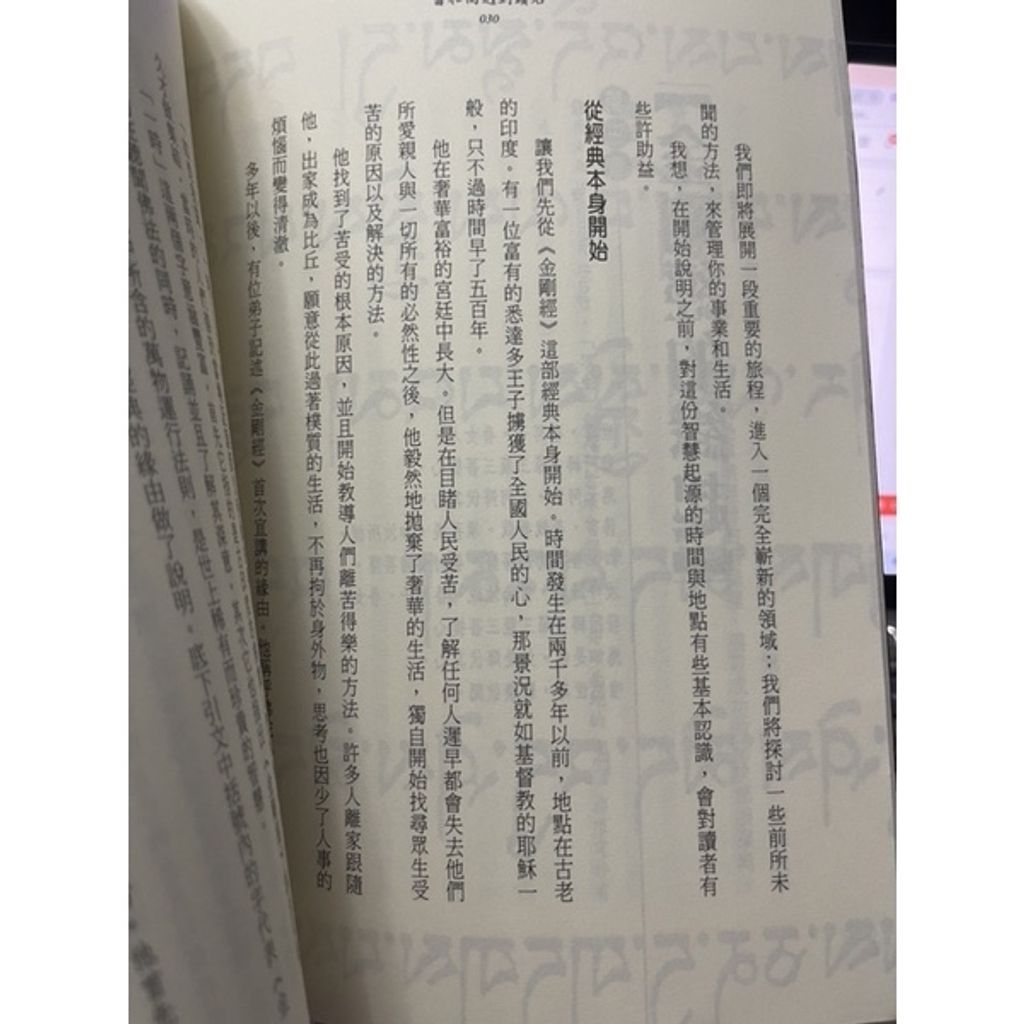 030
我們即將展開一段重要的旅程，進入一個完全嶄新的領域；我們將探討一些前所未
聞的方法，來管理你的事業和生活。
我想，在開始說明之前，對這份智慧起源的時間與地點有些基本認識，會對讀者有
些許助益。
從經典本身開始
讓我們先從《金剛經》這部經典本身開始。時間發生在兩千多年以前，地點在古老
的印度。有一位富有的悉達多王子擄獲了全國人民的心，那景況就如基督教的耶穌一
般，只不過時間早了五百年。
他在奢華富裕的宮廷中長大。但是在目睹人民受苦，了解任何人遲早都會失去他們
所愛親人與一切所有的必然性之後，他毅然地拋棄了奢華的生活，獨自開始找尋眾生受
苦的原因以及解決的方法。
他找到了苦受的根本原因，並且開始教導人們離苦得樂的方法。許多人離家跟隨
他，出家成為比丘，願意從此過著樸質的生活，不再拘於身外物，思考也因少了人事的
煩惱而變得清澈。
多年以後，有位弟子記述《金剛經》首次宣講的緣由。
的同時，記誦並且了解其深意，是世上稀有而珍貴的
所含的萬物運行法則
的緣由做了說明。底下引文中括號內的